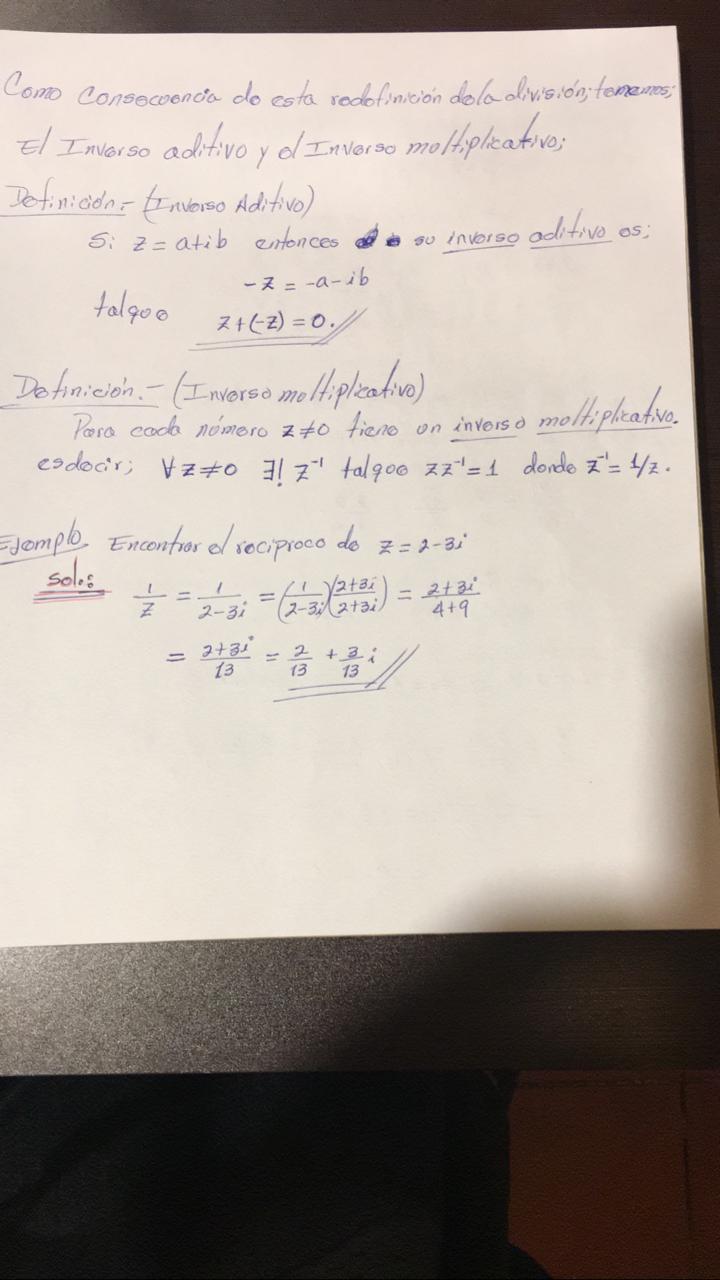 Como consecuencia de esta redefinición de la división; tenemos;
El Inverso aditivo y el Inverso multiplicativo;
Definición.- (Inverso Aditivo)
Si z = a+ib entonces su inverso aditivo es;
-z = -a-ib
tal que z+(-z) = 0.
Definición.- (Inverso multiplicativo)
Para cada número z≠0 tiene un inverso multiplicativo.
es decir; ∀z≠0 ∃! z⁻¹ tal que zz⁻¹=1 donde z⁻¹= 1/z.
Ejemplo Encontrar el reciproco de z = 2-3i
sol.:
1/z = 1/(2-3i) = (1/(2-3i))((2+3i)/(2+3i)) = (2+3i)/(4+9)
= (2+3i)/13 = 2/13 + 3/13 i